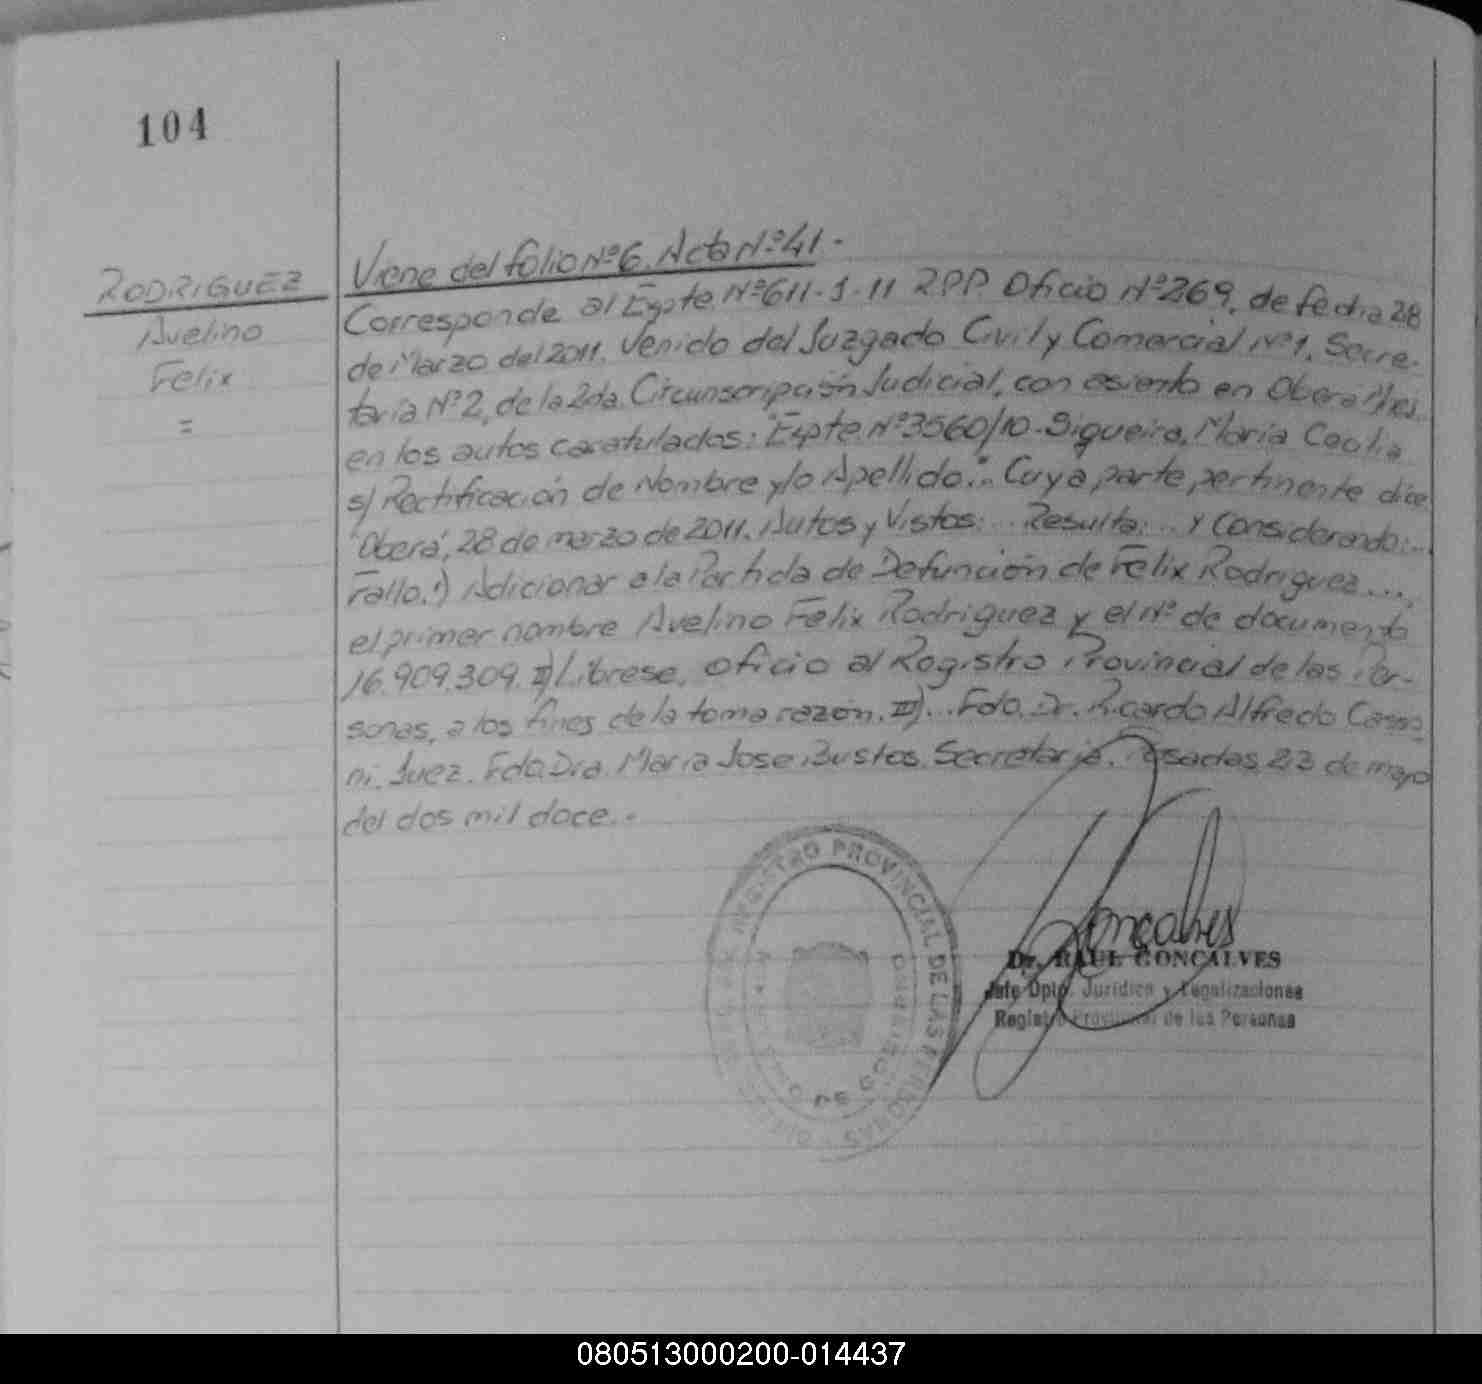 104
RODRIGUEZ
Avelino
Felix
=
Viene del folio Nº 6. Acta Nº 41.-
Corresponde al Expte. Nº 611-J-11 R.P.P. Oficio Nº 269, de fecha 28
de Marzo del 2011. Venido del Juzgado Civil y Comercial Nº 1, Secre-
taria Nº 2, de la 2da. Circunscripción Judicial, con asiento en Oberá
en los autos caratulados: "Expte. Nº 3560/10. Sigueira, Maria Cecilia
s/ Rectificación de Nombre y/o Apellido." Cuya parte pertinente dice
"Oberá, 28 de marzo de 2011. Autos y Vistos:... Resulta:... y Considerando:...
Fallo. I) Adicionar a la Partida de Defunción de Felix Rodriguez...,
el primer nombre Avelino Felix Rodriguez y el Nº de documento
16.909.309. II) Librese, oficio al Registro Provincial de las Per-
sonas, a los fines de la toma razón. III)... Fdo. Dr. Ricardo Alfredo
ni. Juez. Fdo. Dra. Maria Jose Bustos. Secretaria. Posadas 23 de mayo
del dos mil doce.-
REGISTRO PROVINCIAL DE LAS PERSONAS
GOBIERNO DE
Goncalves
Dr. RAUL GONCALVES
Jefe Dpto. Jurídico y Legalizaciones
Registro Provincial de las Personas
080513000200-014437